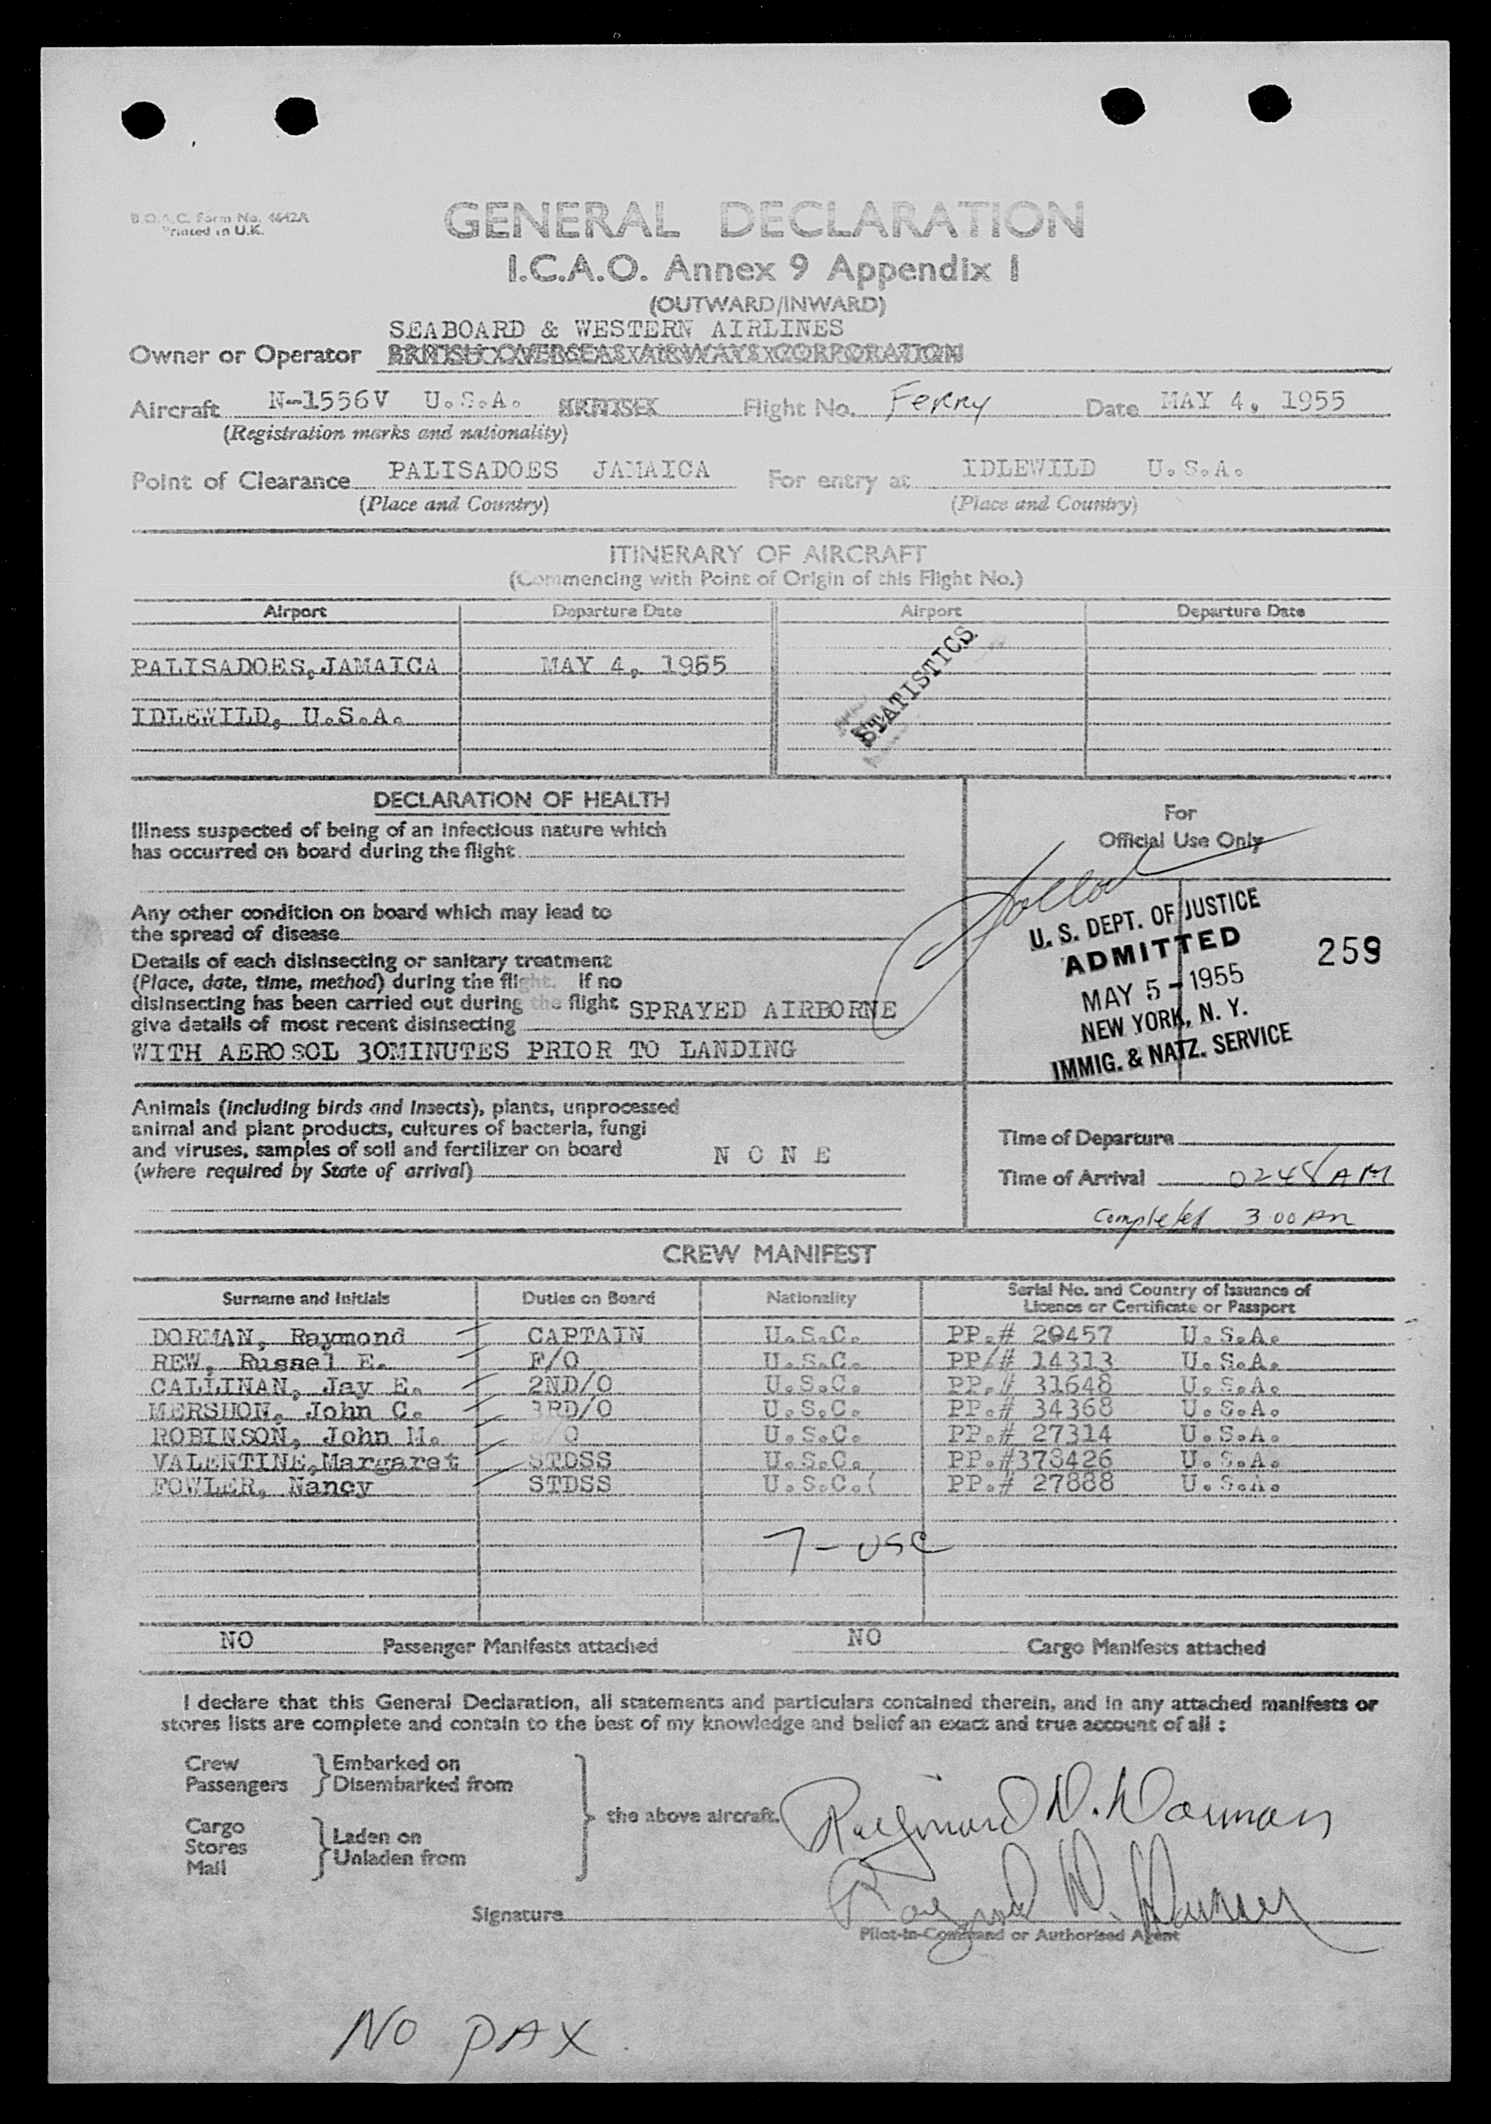 B.O.A.C. Form No. 4642A
Printed in U.K.
GENERAL DECLARATION
I.C.A.O. Annex 9 Appendix I
(OUTWARD/INWARD)
SEABOARD & WESTERN AIRLINES
Owner or Operator BRITISH OVERSEAS AIRWAYS CORPORATION
Aircraft N-1556V U.S.A. BRITISH Flight No. Ferry Date MAY 4, 1955
(Registration marks and nationality)
Point of Clearance PALISADOES JAMAICA For entry at IDLEWILD U.S.A.
(Place and Country) (Place and Country)
ITINERARY OF AIRCRAFT
(Commencing with Point of Origin of this Flight No.)
Airport Departure Date Airport Departure Date
PALISADOES, JAMAICA MAY 4, 1955
IDLEWILD, U.S.A.
STATISTICS
DECLARATION OF HEALTH
Illness suspected of being of an infectious nature which
has occurred on board during the flight
Any other condition on board which may lead to
the spread of disease
Details of each disinsecting or sanitary treatment
(Place, date, time, method) during the flight. If no
disinsecting has been carried out during the flight
give details of most recent disinsecting SPRAYED AIRBORNE
WITH AEROSOL 30MINUTES PRIOR TO LANDING
For
Official Use Only
U. S. DEPT. OF JUSTICE
ADMITTED
259
MAY 5 - 1955
NEW YORK, N. Y.
IMMIG. & NATZ. SERVICE
Animals (including birds and insects), plants, unprocessed
animal and plant products, cultures of bacteria, fungi
and viruses, samples of soil and fertilizer on board
(where required by State of arrival) N O N E
Time of Departure
Time of Arrival 0248 AM
Completed 3 00 Am
CREW MANIFEST
Surname and Initials Duties on Board Nationality Serial No. and Country of Issuance of
Licence or Certificate or Passport
DORMAN, Raymond CAPTAIN U.S.C. PP.# 29457 U.S.A.
REW, Russel E. F/O U.S.C. PP/# 14313 U.S.A.
CALLINAN, Jay E. 2ND/O U.S.C. PP.# 31648 U.S.A.
MERSHON, John C. 3RD/O U.S.C. PP.# 34368 U.S.A.
ROBINSON, John H. /O U.S.C. PP.# 27314 U.S.A.
VALENTINE,Margaret STDSS U.S.C. PP.#378426 U.S.A.
FOWLER, Nancy STDSS U.S.C.( PP.# 27888 U.S.A.
7 - USC
NO Passenger Manifests attached NO Cargo Manifests attached
I declare that this General Declaration, all statements and particulars contained therein, and in any attached manifests or
stores lists are complete and contain to the best of my knowledge and belief an exact and true account of all :
Crew Embarked on
Passengers Disembarked from
the above aircraft.
Cargo
Stores Laden on
Mail Unladen from
Raymond D. Dorman
Raymond D. Dorman
Signature
Pilot-in-Command or Authorised Agent
NO PAX